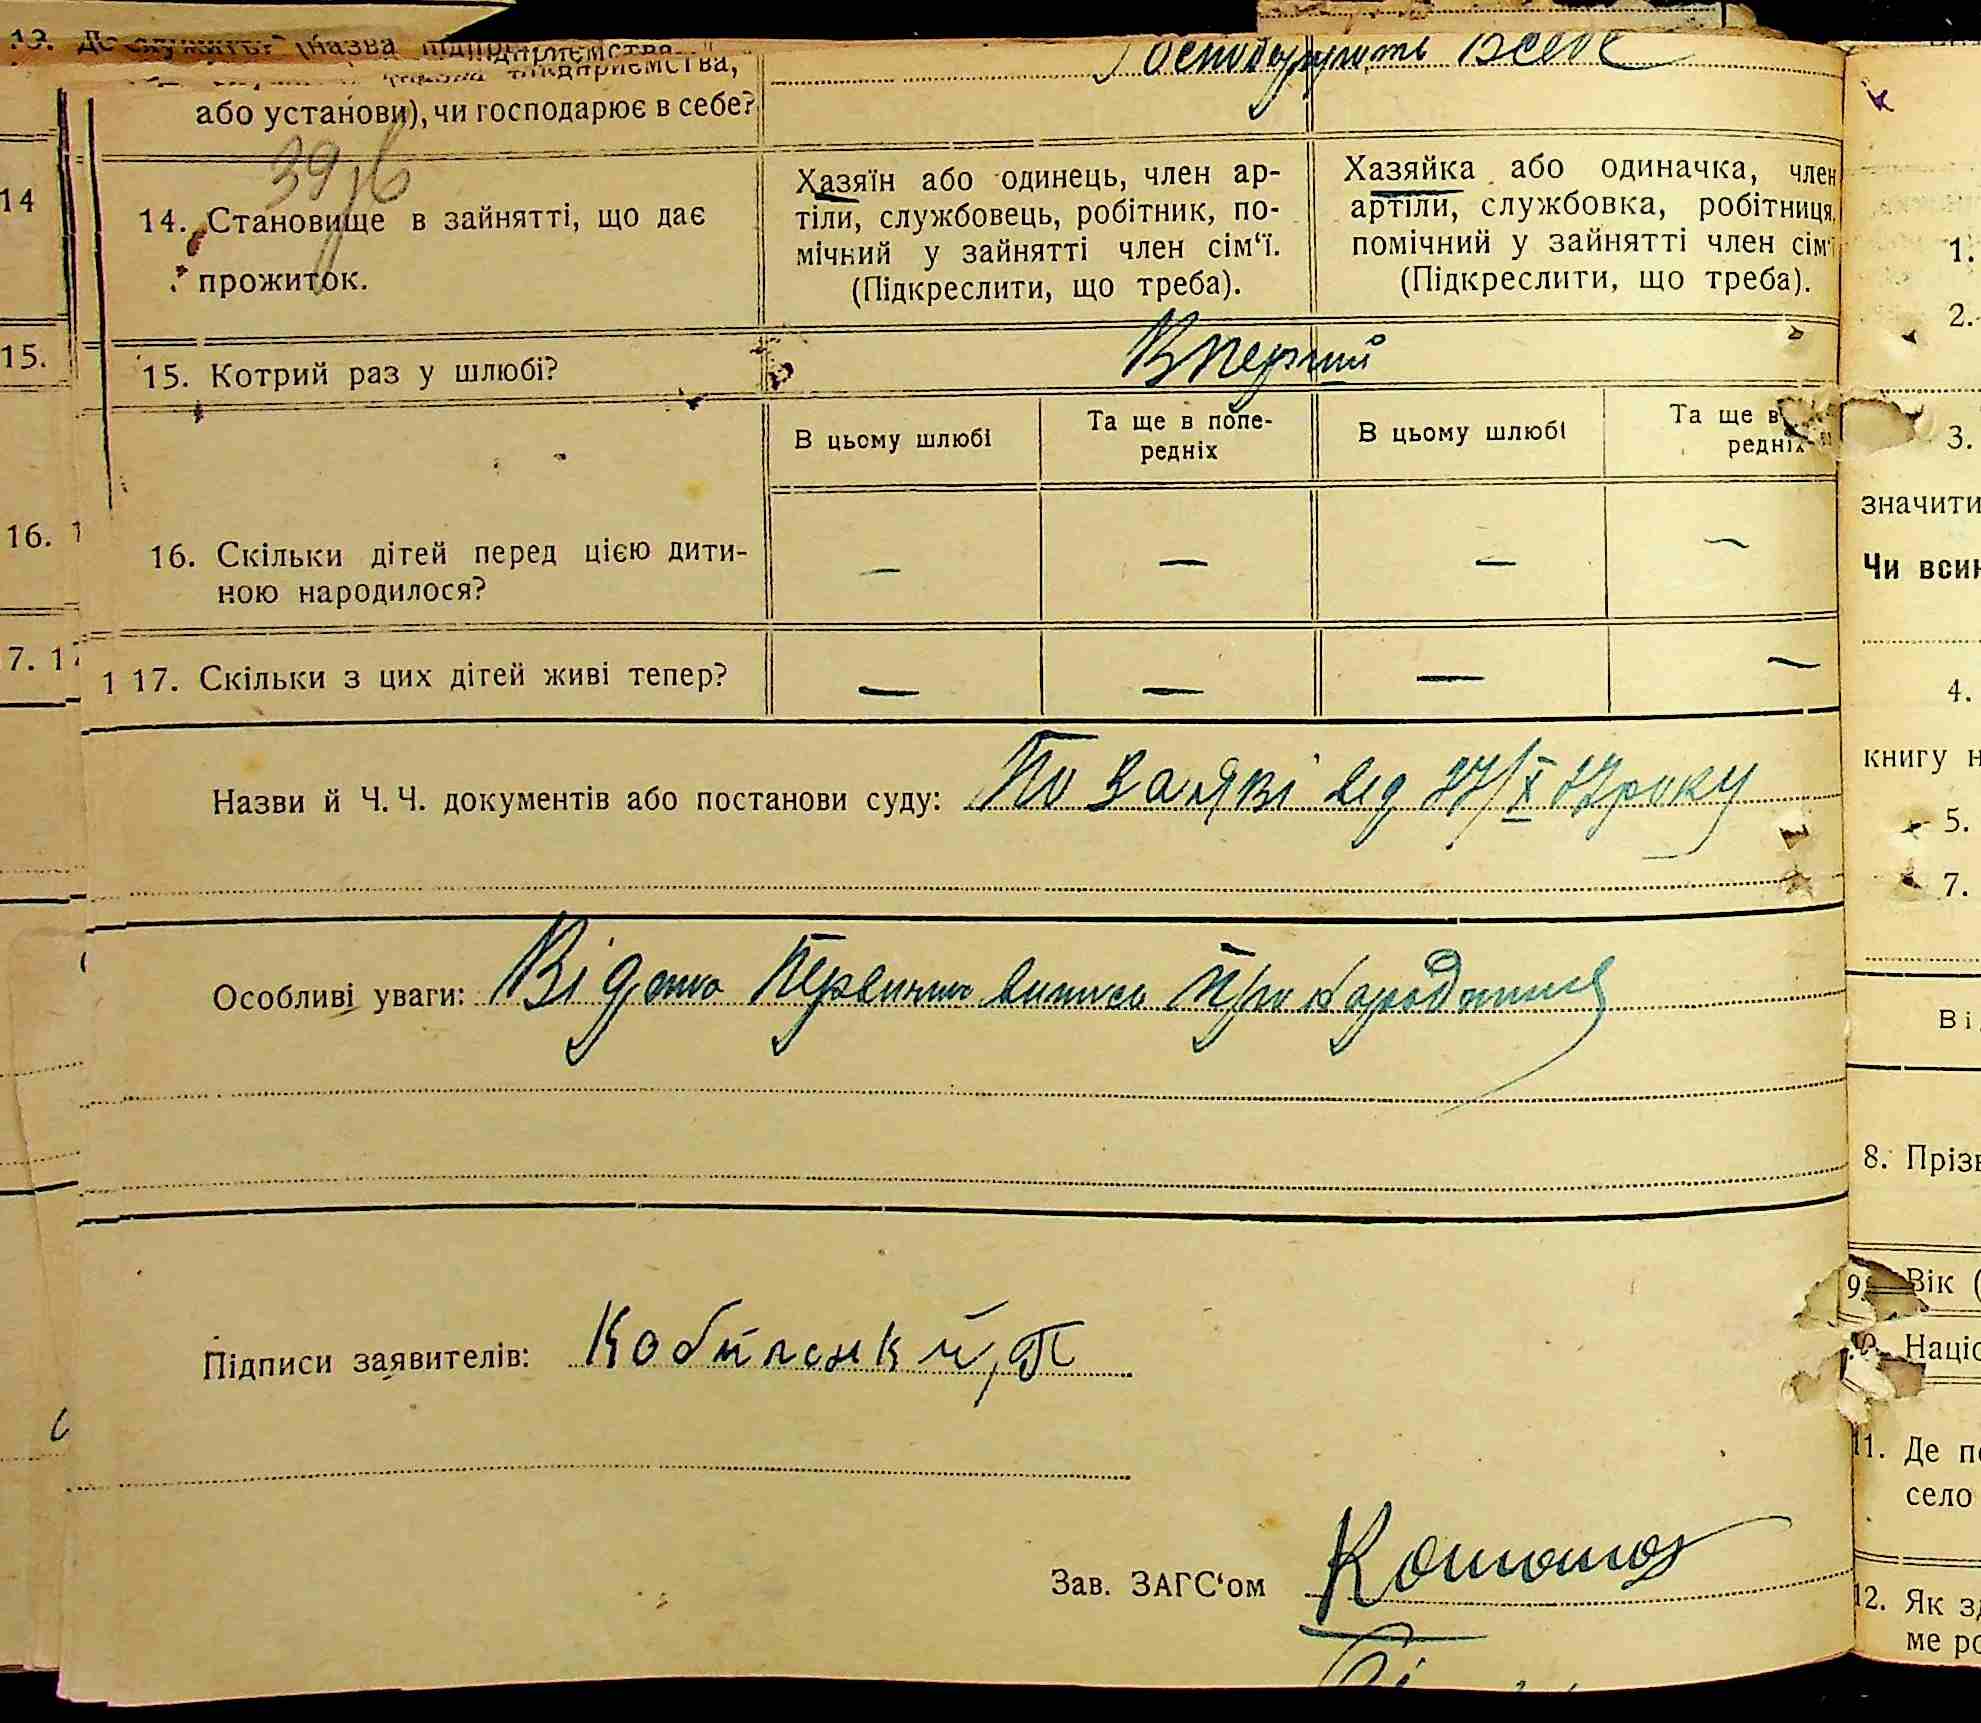 13. Де служить? (назва підприємства,
або установи), чи господарює в себе? Господарить в себе
39
14. Становище в зайнятті, що дає
прожиток.
Хазяїн або одинець, член ар-
тіли, службовець, робітник, по-
мічний у зайнятті член сім‘ї.
(Підкреслити, що треба).
Хазяйка або одиначка, член
артіли, службовка, робітниця,
помічний у зайнятті член сім‘ї
(Підкреслити, що треба).
15. Котрий раз у шлюбі? Вперший
В цьому шлюбі
Та ще в попе-
редніх
В цьому шлюбі
Та ще в
редніх
16. Скільки дітей перед цією дити-
ною народилося? — — — —
17. Скільки з цих дітей живі тепер? — — — —
Назви й Ч. Ч. документів або постанови суду: По заяві від 27/X 27 року
Особливі уваги: Відано Первинну випись Про народження
Підписи заявителів:
Зав. ЗАГС‘ом
14
15.
16.
7.
1.
2.
3.
значити
Чи всин
4.
книгу н
5.
7.
Ві
8. Прізв
9. Вік (
Націо
11. Де по
село
12. Як зд
ме ро